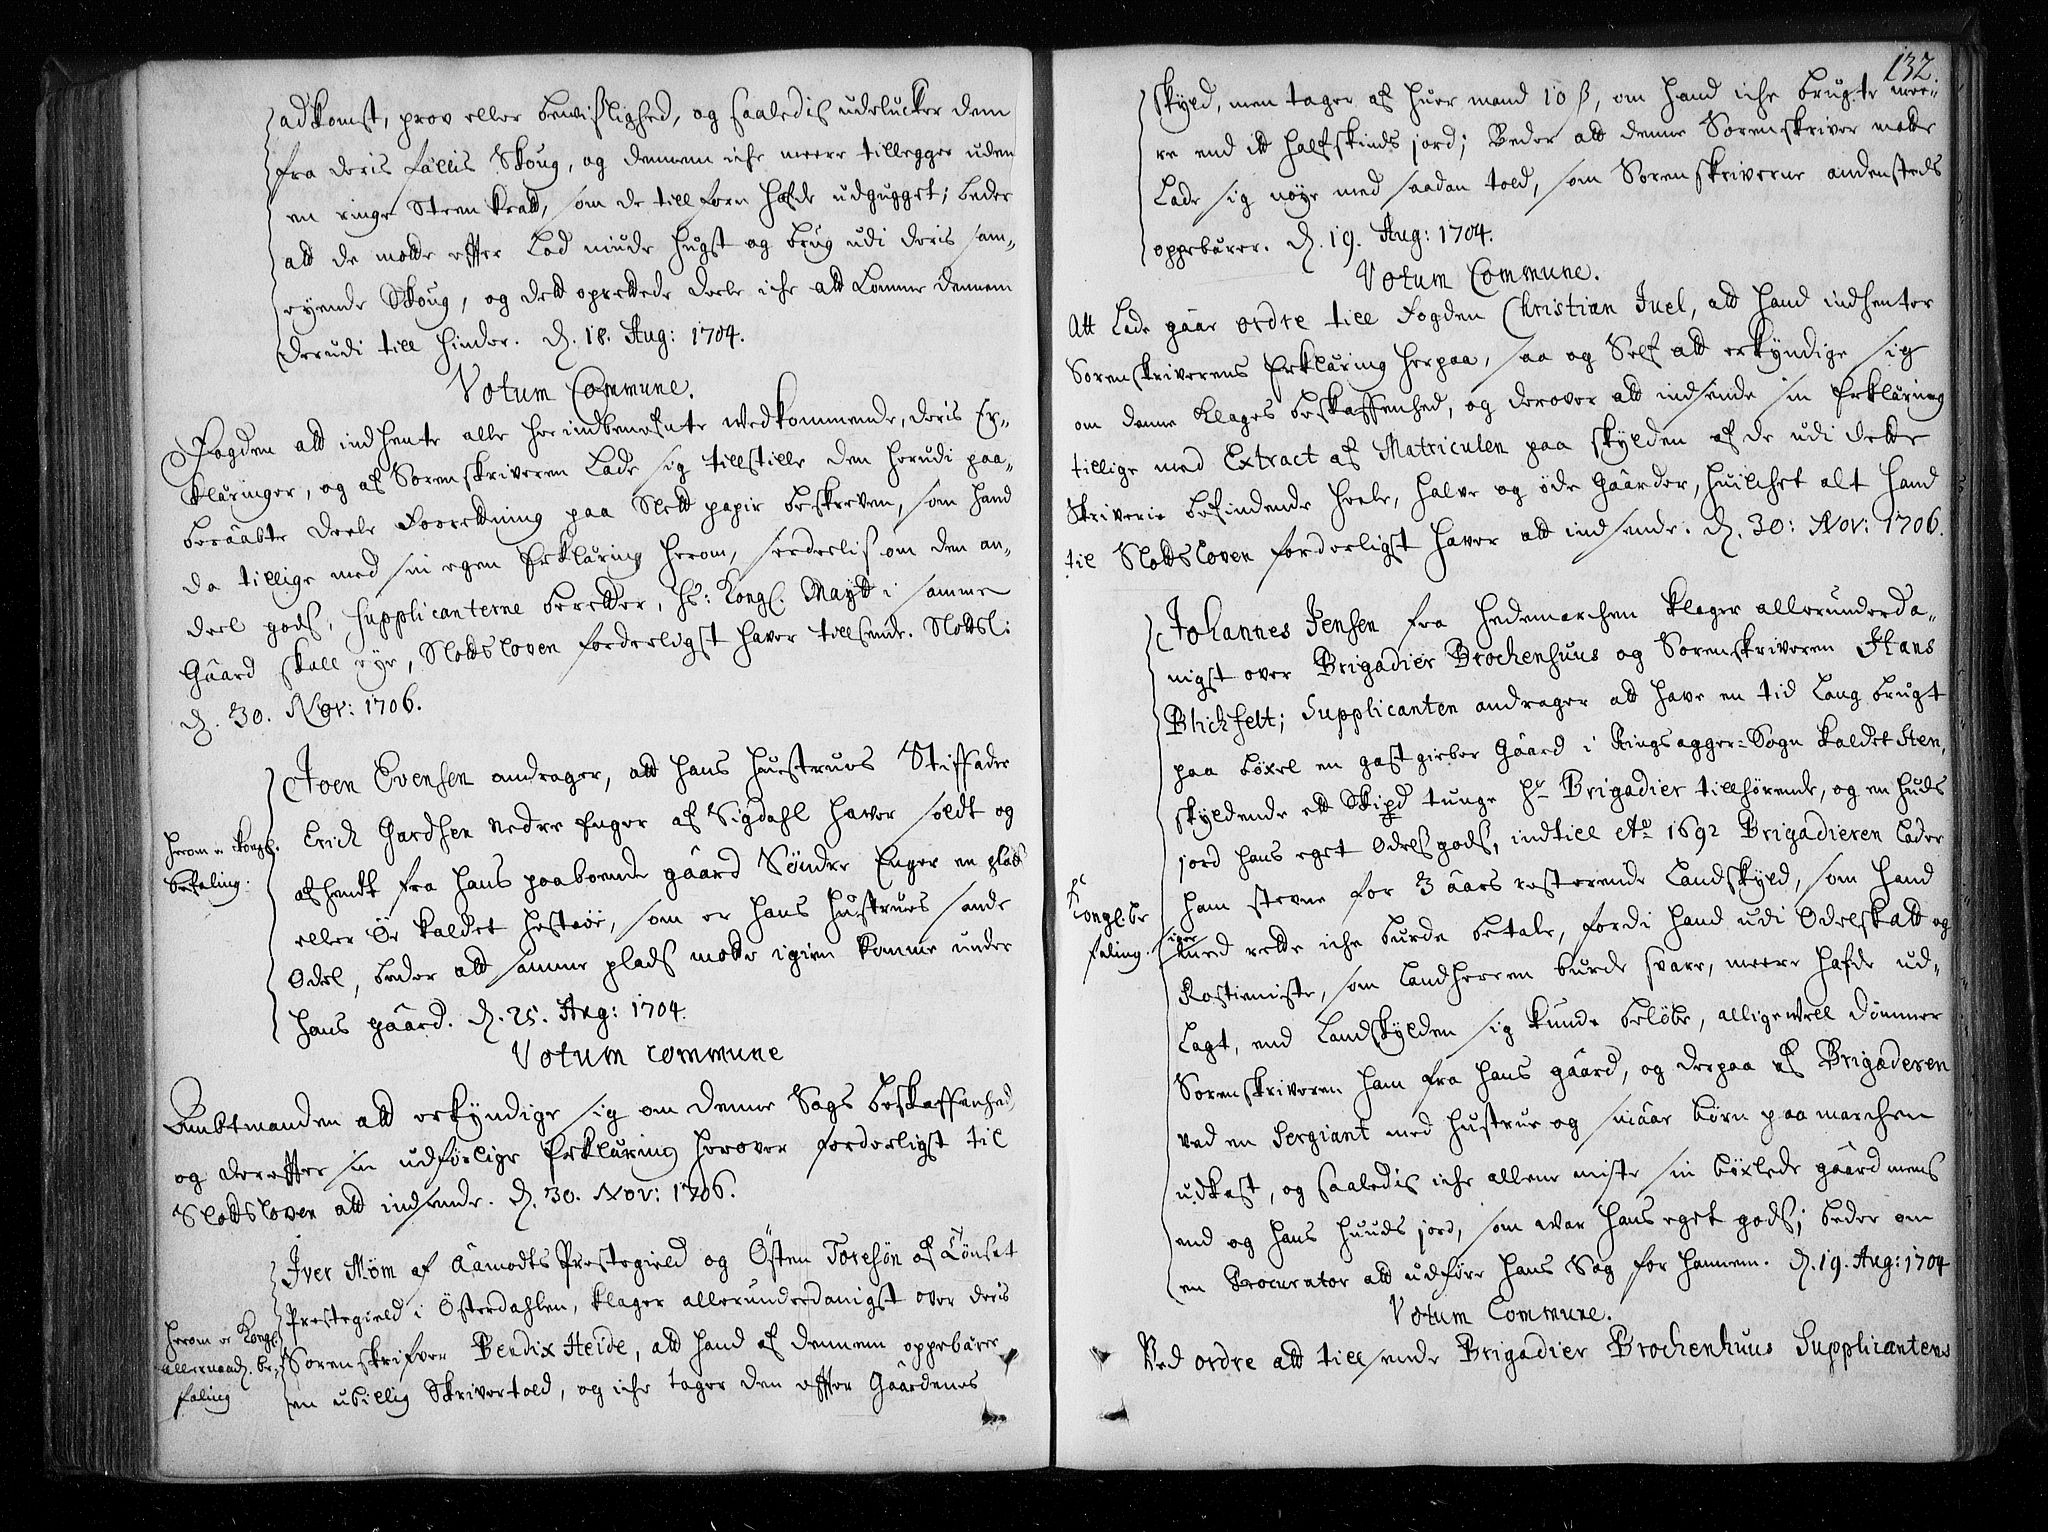 adkomst, prov eller bewißlighed, og saaledis udelucker dem
fra deris fællis Skoug, og dennem iche meere tillegger uden
en ringe Steen kratt, som de tillforn hafde udhugget; beder
att de motte effter Lod niude hugst og brug udi deris sam¬
eyende Skoug, og dett oprettede deele iche att komme dennem
derudi till hinder. D. 18. Aug: 1704.
Votum Commune.
Fogden att indhente alle herindbenefnte wedkommende, deris Er¬
klæringer, og af Sorenskriveren lade sig tillstille den herudi paa¬
beraabte deele Forretning paa slett papir beskreven, som hand
da tillige med sin egen Erklæring herom, serdelis om den an¬
deel gods, Supplicanterne beretter, hs: Kongl. Maytt i samme
Gaard skall eye, Slottsloven forderligst haver tillsende. Slottsl:
D. 30. Nov: 1706.
Joen Evensen andrager, att hans hustrues Stiffader
Erich Gardsen Nedre Enger af Sigdahl haver soldt og
herom er Kongl.
befaling:
afhendt fra hans paaboende gaard Søndre Enger en plads
eller Øe kaldet hestøe, som er hans hustrues sande
Odel, beder att samme plads motte igien komme under
hans gaard. D. 25. Aug: 1704.
Votum commune
Ambtmanden att erkyndige sig om denne Sags beskaffenhed
og dereffter sin udførlige Erklæring herover forderligst til
Slottsloven att indsende. D. 30. Nov: 1706.
Iver Møm af Aamodts Prestegield og Østen Toresøn af Tønset
Prestegield i Østerdahlen, klager allerunderdanigst over deris
herom er Kongl.
allernaad. be¬
faling
Sorenskrifver Bendix Heide, att hand af dennem oppebærer
en ubillig Skrivertold, og iche tager den effter Gaardenes
132.
skyld, men tager af huer mand 10 ß, om hand iche brugte mee¬
re end itt halfskinds jord; Beder att denne Sorenskriver motte
Lade sig nøye med saadan told, som Sorenskriverne andensteds
oppebærer. D. 19. Aug: 1704.
Votum Commune.
Att lade gaar ordre till Fogden Christian Juel, att hand indhenter
Sorenskriverens Erklæring herpaa, saa og Self att erkyndige sig
om denne Klages beskaffenhed, og derover att indsende sin Erklæring
tillige med Extract af Matriculen paa skylden af de udi dette
Skriverie befindende heele, halve og øde Gaarder, huilchet alt hand
til Slottsloven forderligst haver att indsende. D. 30: Nov: 1706.
Johannes Jensen fra Hedemarchen klager allerunderda¬
nigst over Brigadier Brochenhuus og Sorenskriveren Hans
Blichfelt; Supplicanten andrager att have en tid lang brugt
paa böxel en gastgieber Gaard i Ringsagger-Sogn kaldet Sten,
skyldende ett Skipd tunge hr Brigadier tillhørende, og en huds
jord hans eget Odelsgods, indtill Ao 1692 Brigadieren lader
Kongl. be
faling.
ham stevne for 3 aars resterende Landskyld, som hand
med rette iche burde betale, fordi hand udi Odelskatt og
Rostieniste, som Landherren burde svare, meere hafde ud¬
lagt, end Landskylden sig kunde beløbe, alligewell dømmer
Sorenskriveren ham fra hans gaard, og derpaa af Brigaderen
ved en Sergiant med hustrue og smaae børn paa marchen
udkast, og saaledis iche allene miste sin böxlede gaard mens
end og hans huuds jord, som war hans eget gods; beder om
en Procurator att udføre hans Sag for hannem. D. 19. Aug: 1704
Votum Commune.
Ved ordre att till sende Brigadier Brochenhuus Supplicantens